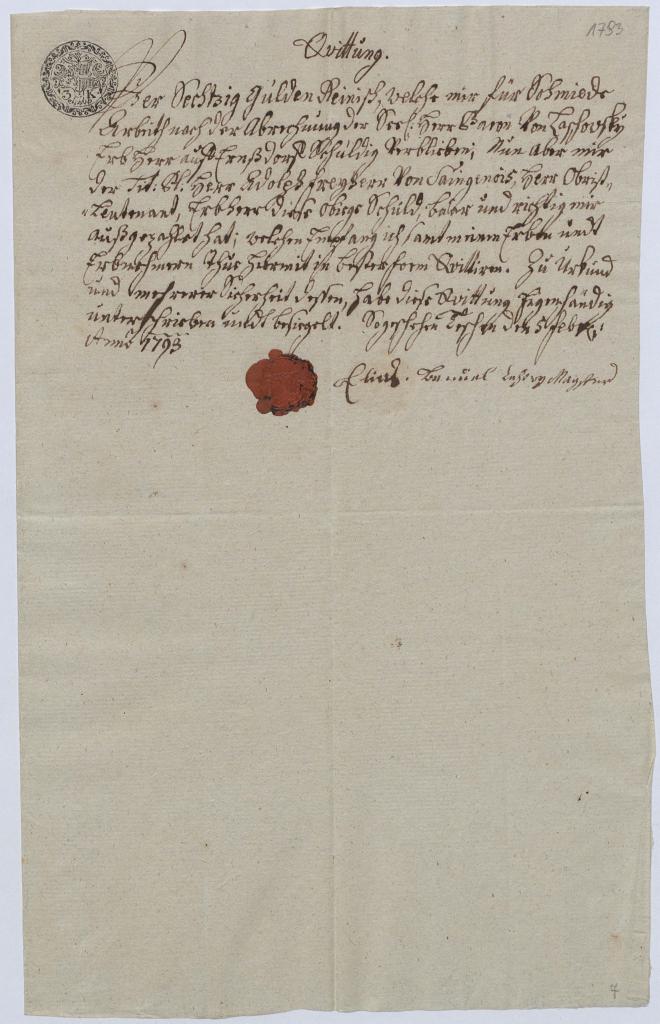 1793
Quittung.
3 K
Per Sechtzig Gulden Reinisch, welche mir für Schmiede
Arbeith nach der Abrechnung der Seel. Herr Baron Von
Erb Herr auf Ernsdorf Schuldig Verblieben; Nun Aber mir
der Tit. Herr Adolph Freyherr Von Saingenois, Herr Obrist-
Leutenant, Erbherr diese obiege Schuld, baar und richtig mir
außgezahlet hat; welchen Empfang ich samt meinen Erben undt
Erbnehmern Thue hiermit in bester form Quittiren. Zu Urkund
und mehrerer Sicherheit dessen, habe diese Quittung Eigenhändig
unterschrieben undt besiegelt. Sogeschehen Teschen den 5 Febr:
Anno 1793
Elias
7